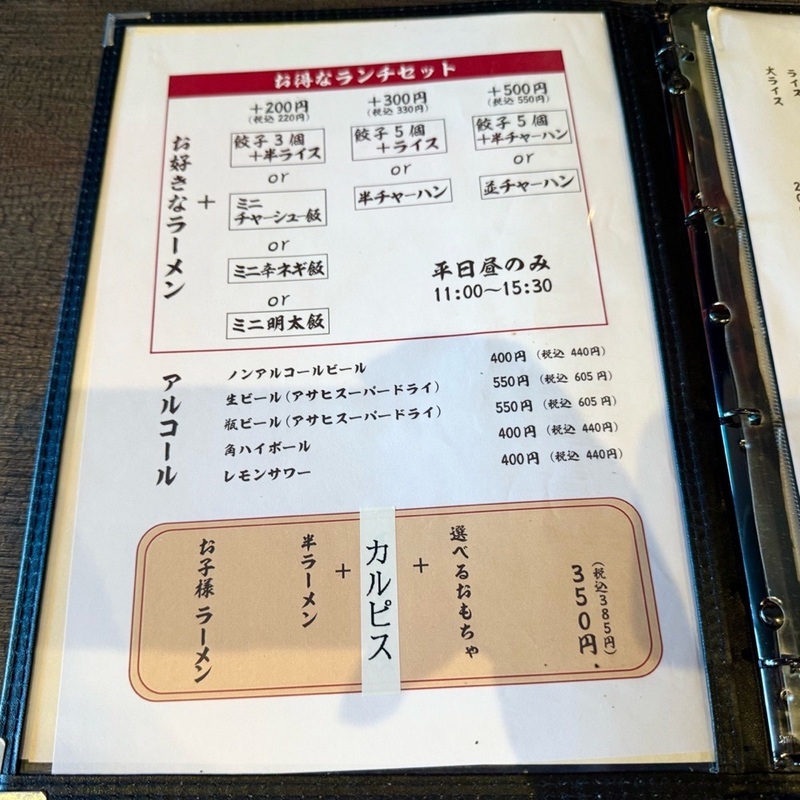 お得なランチセット
お好きなラーメン
+
+200円
(税込 220円)
餃子3個
+半ライス
or
ミニ
チャーシュー飯
or
ミニ辛ネギ飯
or
ミニ明太飯
+300円
(税込 330円)
餃子5個
+ライス
or
半チャーハン
+500円
(税込 550円)
餃子5個
+半チャーハン
or
並チャーハン
平日昼のみ
11:00〜15:30
アルコール
ノンアルコールビール 400円 (税込 440円)
生ビール(アサヒスーパードライ) 550円 (税込 605円)
瓶ビール(アサヒスーパードライ) 550円 (税込 605円)
角ハイボール 400円 (税込 440円)
レモンサワー 400円 (税込 440円)
お子様ラーメン
半ラーメン
+
カルピス
+
選べるおもちゃ
350円
(税込385円)
ライス
大ライス